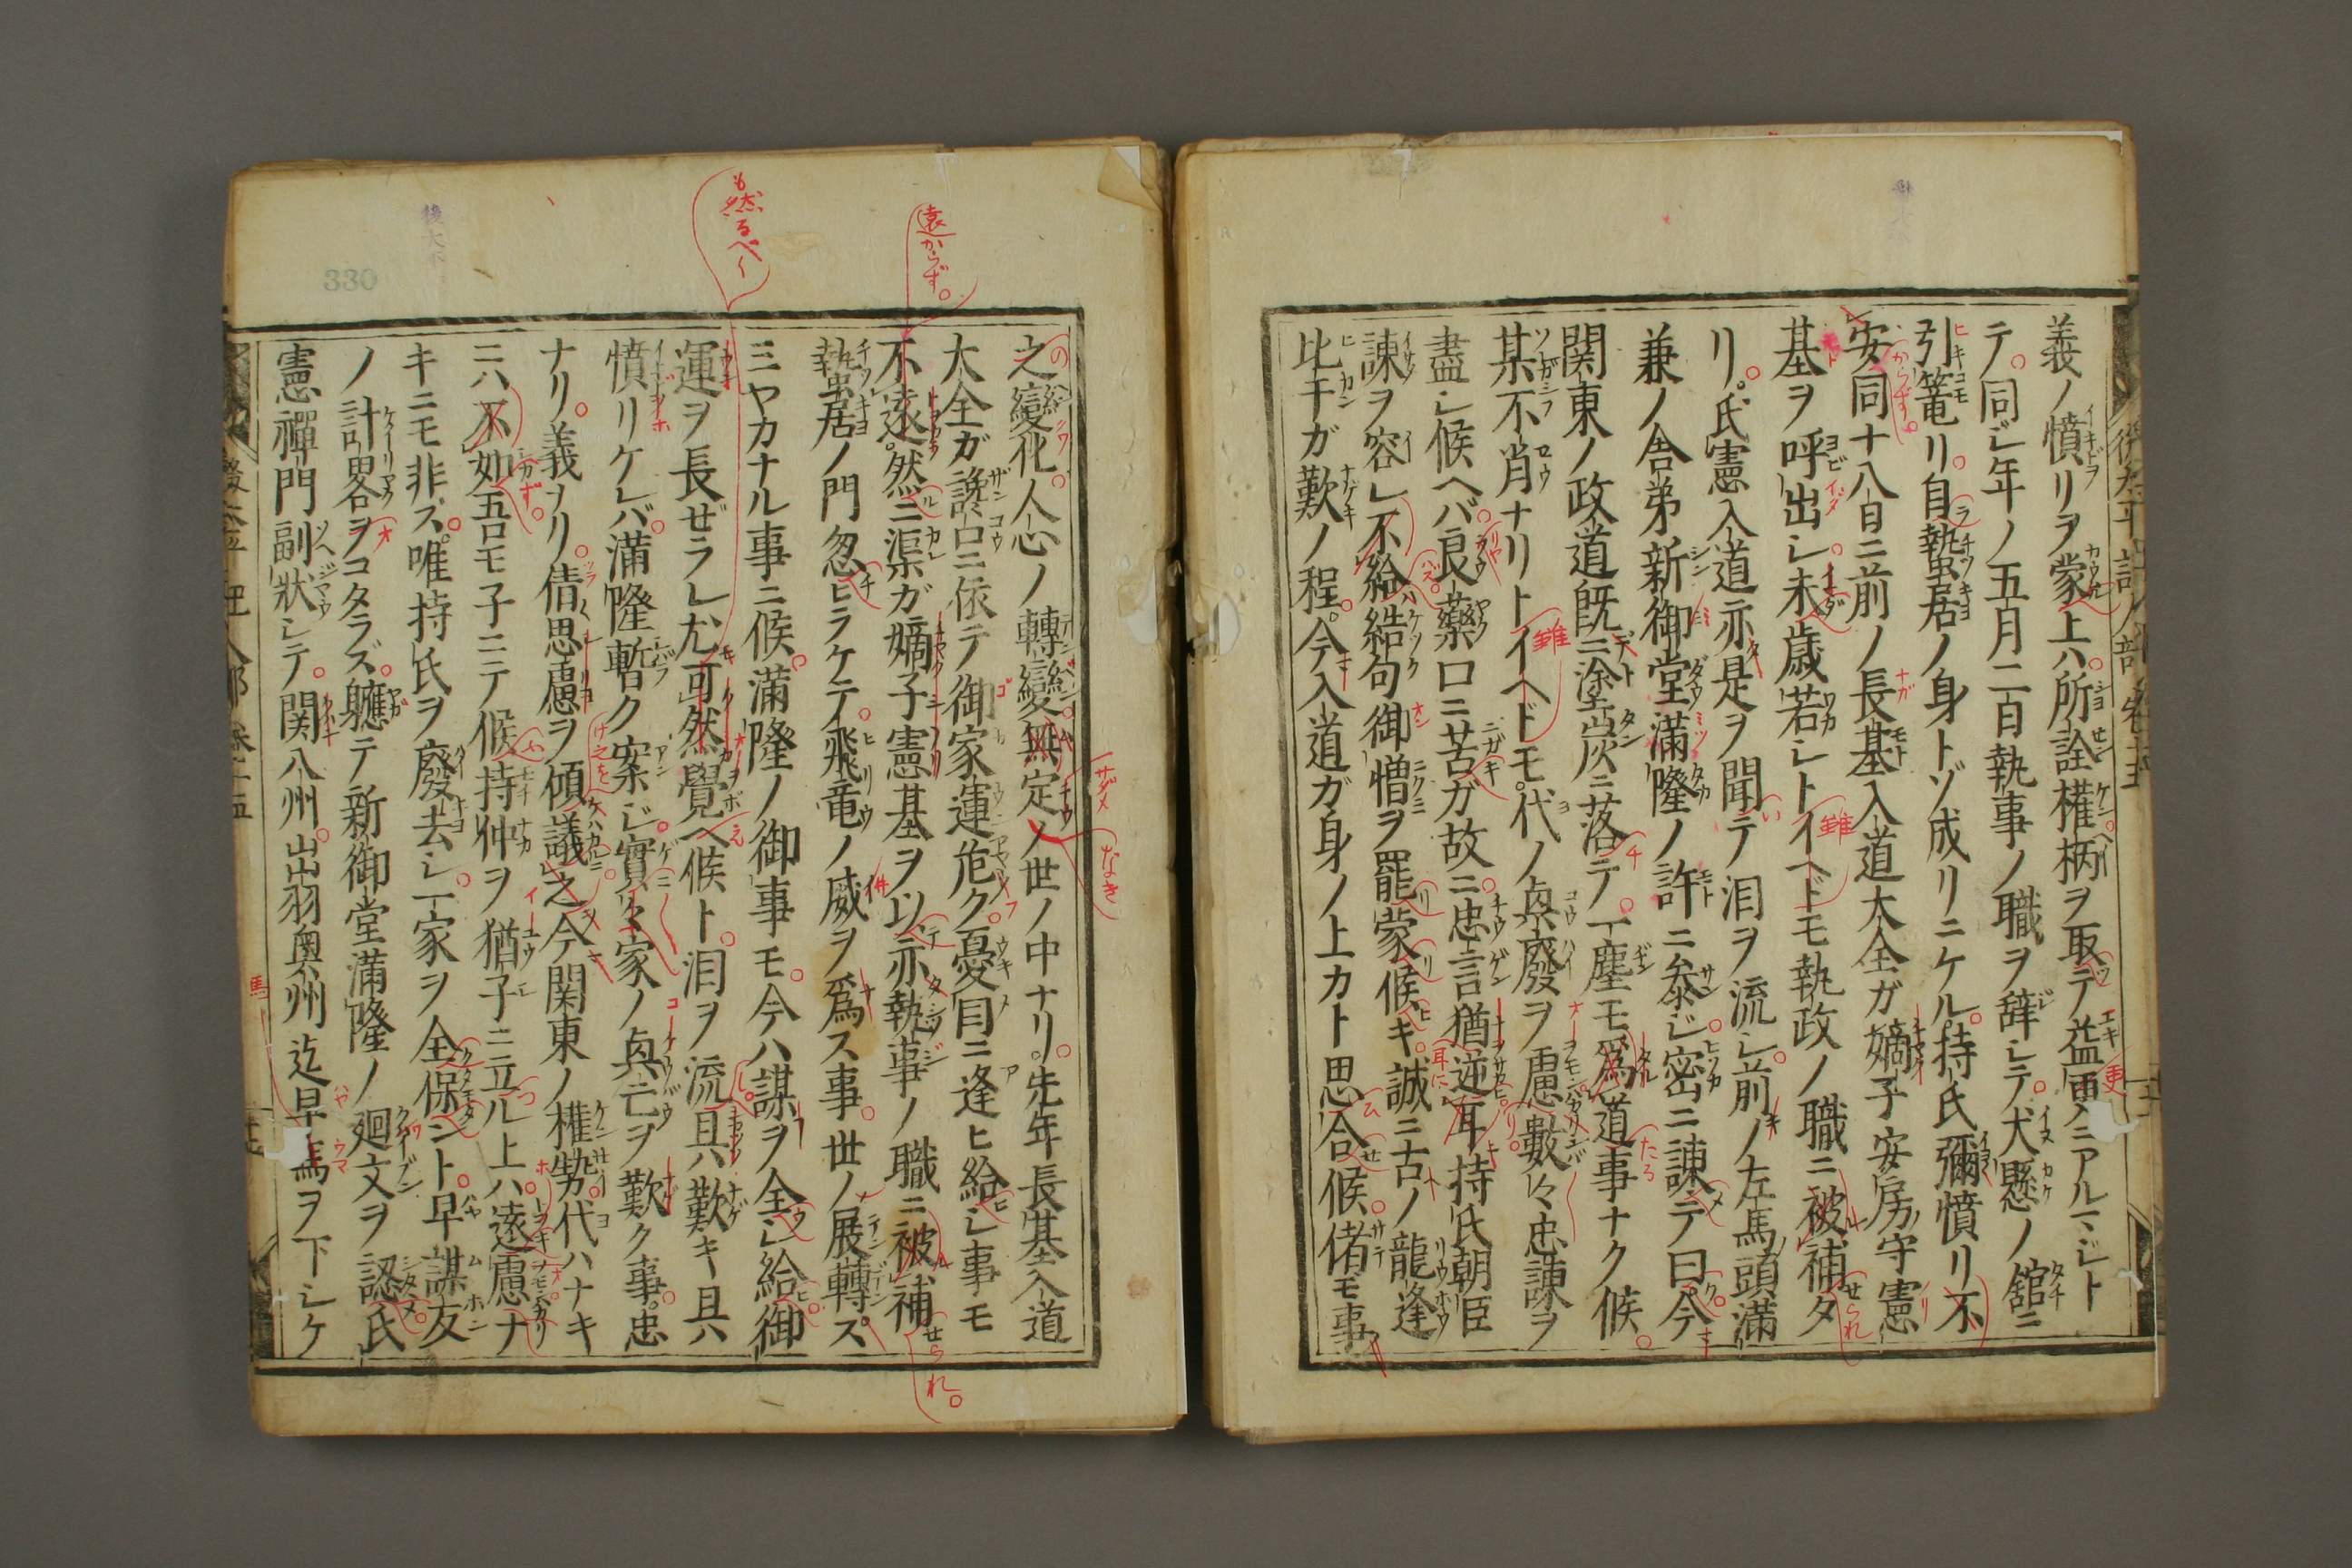 義ノ憤リヲ蒙ル上ハ所詮權柄ヲ取テ益
テ同シ年ノ五月二日執事ノ職ヲ辭シテ犬懸ノ舘ニ
引篭リ自蟄居ノ身トゾ成リニケル持氏彌憤リ不
安同十八日ニ前ノ長基入道大全ガ嫡子安房守憲
基ヲ呼出シ未歳若シトイヘドモ執政ノ職ニ被補タ
リ氏憲入道亦是ヲ聞テ泪ヲ流シ前ノ左馬頭滿
兼ノ舎弟新御堂滿隆ノ許ニ參ジ密ニ諌テ曰今
関東ノ政道既ニ塗炭ニ落テ一塵モ爲道事ナク候
某不肖ナリトイヘドモ代ノ興廢ヲ慮數々忠諌ヲ
盡シ候ヘバ良藥口ニ苦ガ故ニ忠言猶逆耳持氏朝臣
諌ヲ容レ不給結句御憎ヲ罷蒙候キ誠ニ古ノ龍逢
比干ガ歎ノ程今入道ガ身ノ上カト思合候偖モ事
之變化人心ノ轉變無定ノ世ノ中ナリ先年長基入道
大全ガ讒口ニ依テ御家運危ク憂目ニ逢ヒ給シ事モ
不遠然ニ渠ガ嫡子憲基ヲ以亦執事ノ職ニ被補
蟄居ノ門忽ヒラケテ飛竜ノ威ヲ爲ス事世ノ展轉ス
ミヤカナル事ニ候滿隆ノ御事モ今ハ謀ヲ全シ給御
運ヲ長ゼラレ尤可然覺ヘ候ト泪ヲ流且ハ歎キ且ハ
憤リケレバ滿隆暫ク案ジ實々家ノ興亡ヲ歎ク事忠
ナリ義ナリ倩思慮ヲ傾議之今関東ノ權勢代ハナキ
ニハ不如吾モ子ニテ候持仲ヲ猶子ニ立ル上ハ遠慮ナ
キニモ非ス唯持氏ヲ廢去シ一家ヲ全保ント早謀友
ノ計畧ヲコタラズ軈テ新御堂滿隆ノ廻文ヲ認氏
憲禪門副狀シテ関八州出羽奥州迄早馬ヲ下シケ
遠からず。
も然るべく
330